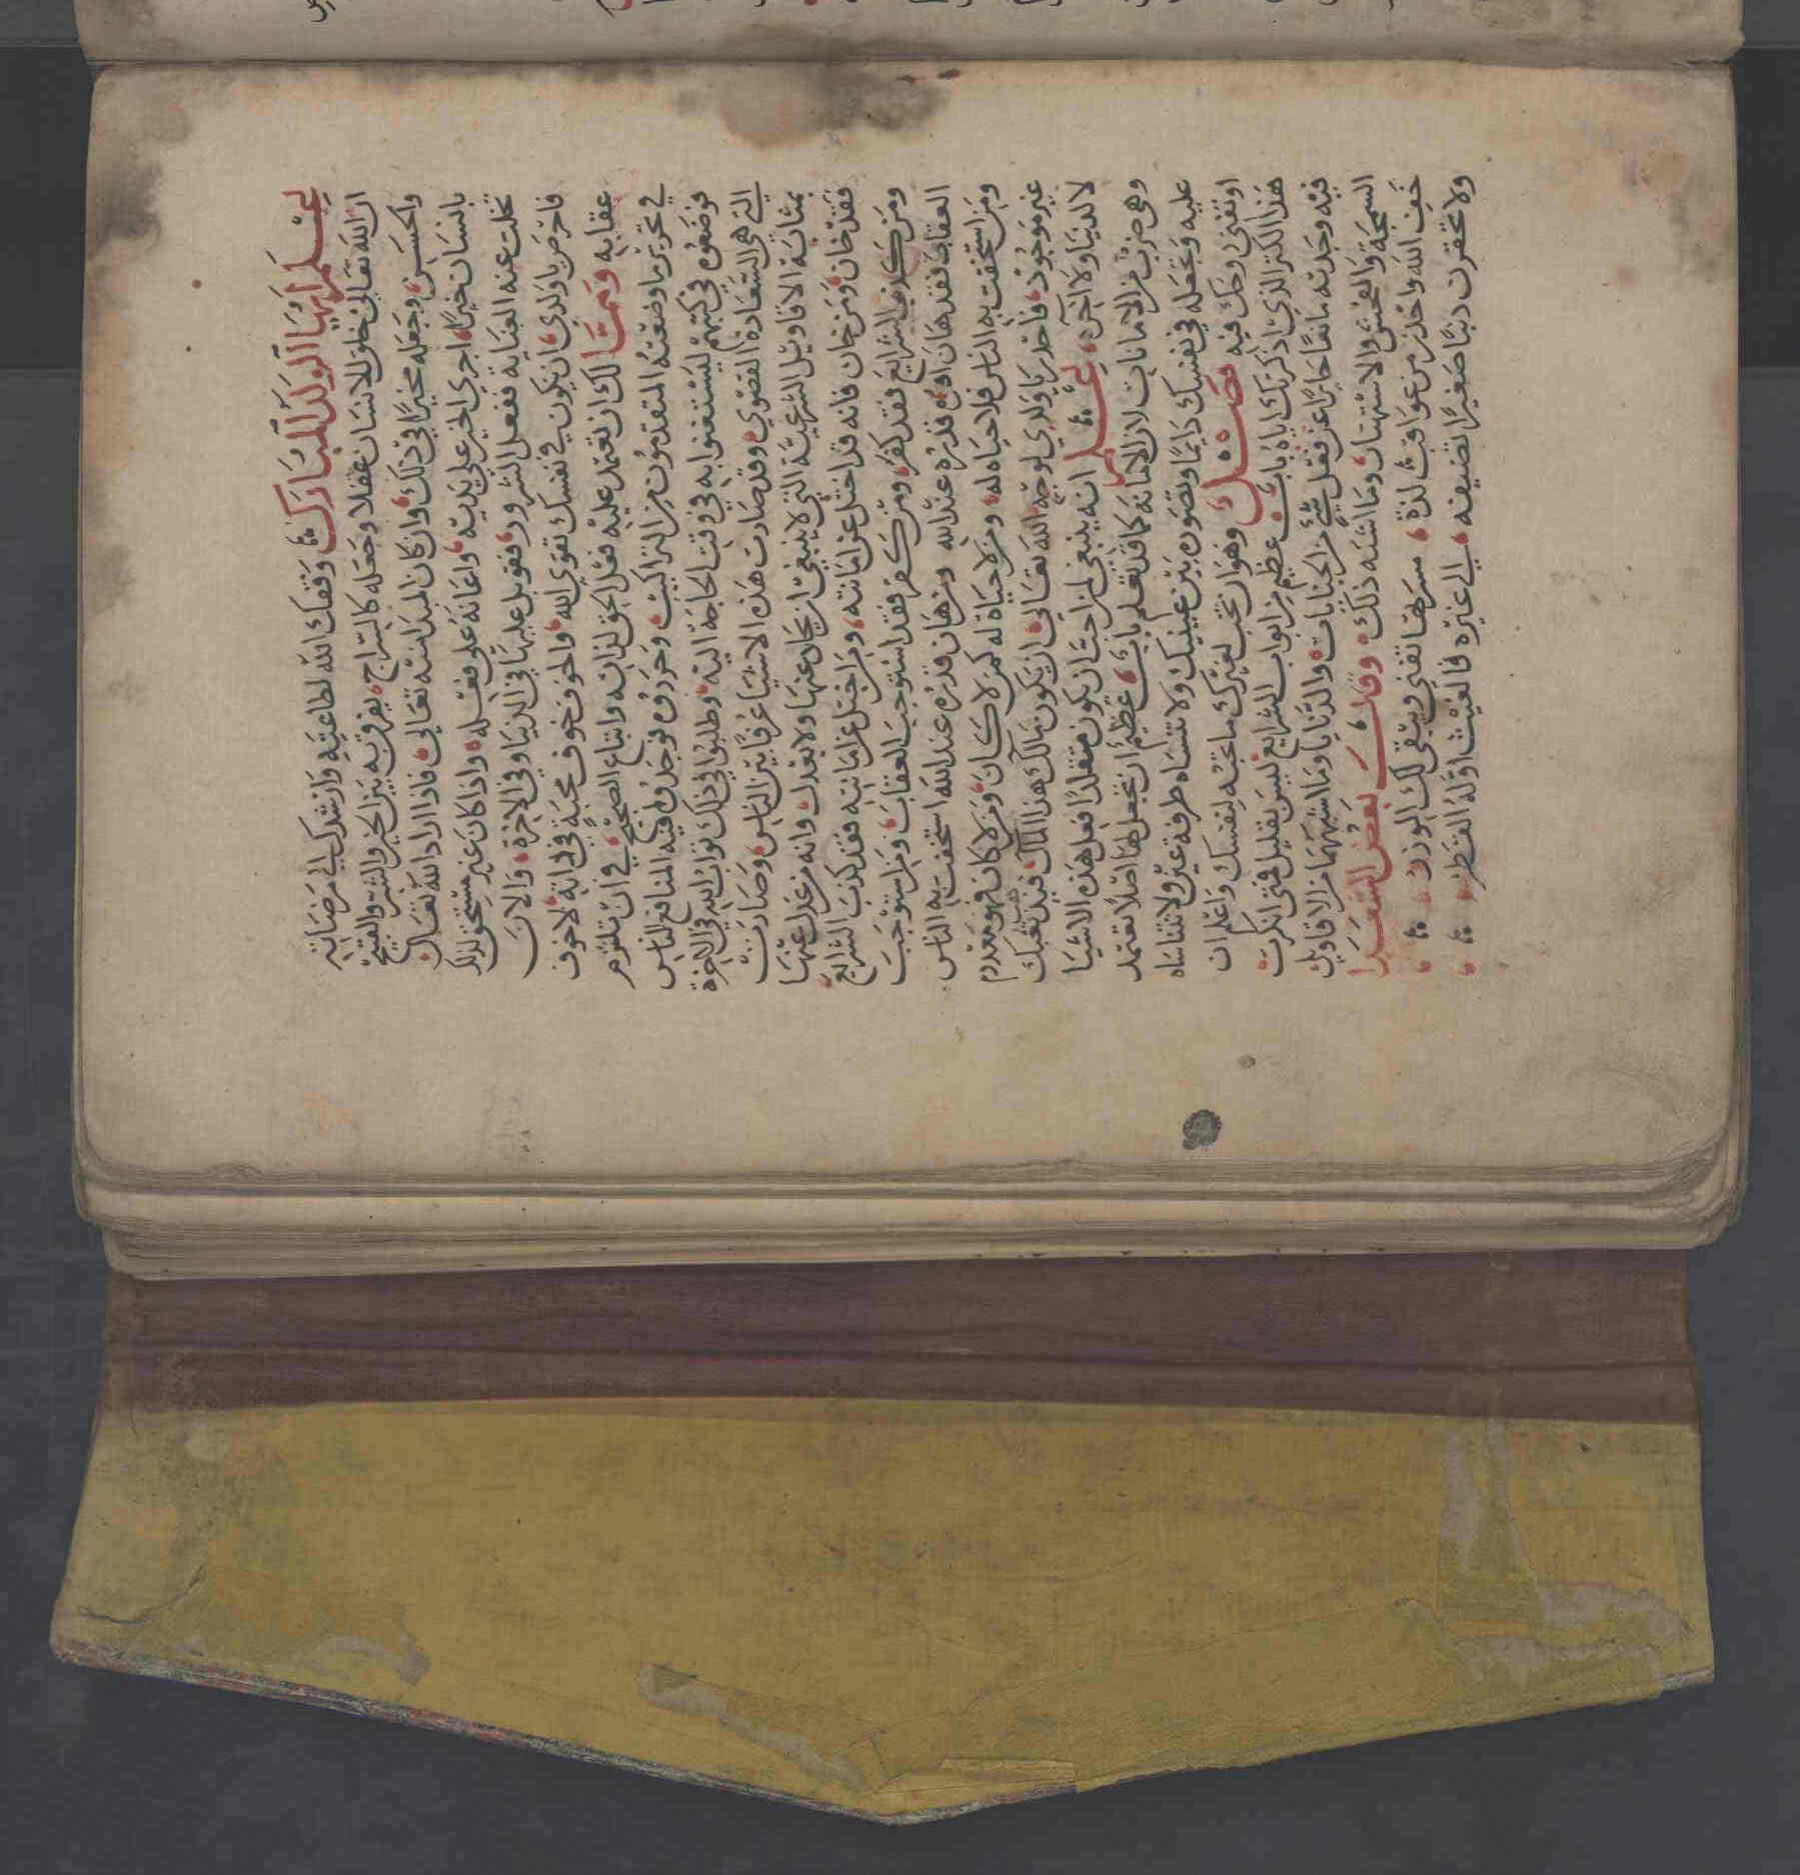 اعلم ايها الولد المبارك وفقك الله لطاعته وارشدك الي مرضاته
ان الله تعالي خلق الانسان عقلا وجعله كالسراج يفرق به بين الخير والشر والقبيح
والحسن وجعله مخيرا في ذلك وان كان المبدا منه تعالي فاذا اراد الله تعالي
بانسان خيرا اجري الخير علي يديه واعانه علي فعله واذا كان غير مستحق لذلك
تخلت عنه العناية ففعل الشرور فقوبل عليها في الدنيا وفي الاخرة والان
فاحرص يا ولدي ان يكون في نفسك تقوي الله والخوف خوف محبة في ذاته لاخوف
عقابه ومتا لك ان تعتمد عليه فعل الحق لذاته واتباع الصحيح في ان تلتزم
في تحرير ما وضعته المتقدمون من التراكيب وحرروه فوجدوا فيه المنافع للناس
فوضعوه في كتبهم ليستعنوا به في وقت الحاجة اليه وطلبوا في ذلك ثواب الله في الاخرة
التي هي السعادة القصوي وقد صارت هذه الاشيا عرفا بين الناس وصارت
بمثابة الاقاويل الشرعية التي لا ينبغي ان يحال عنها ولا يعدل وانه من عدل عنها
فقد خان ومن خان فانه قد اختل عن امانته ومن اختل عن امانته فقد كذب الشرايع
ومن كذب الشرايع فقد كفر ومن كفر فقد استوجب العقاب ومن استوجب
العقاب فقد هان قدره عند الله ومن هان قدره عند الله استخفت به الناس
ومن استخفت به الناس فلا حياه له ومن لا حياة له كمن لا كان ومن لا كان فهو معدوم
غير موجود فاحذر يا ولدي لوجه الله تعالي ان يكون مالك هذا المالك فيذهب تعبك
لا لدنيا ولا اخره اعلم انه ينبغي لمن احب ان يكون متقلدا فعل هذه الاشيا
وهي ضرب من الامانات لان الامانة كما قد تعلم باب عظيم ان تجعلها اصلا تعتمد
عليه وتجعله في نفسك دايما وتصوره بين عينيك ولا تنساه طرفة عين ولا تتناساه
او تفني روحك فيه فصل وهو ان تحب لغيرك ما تحبه لنفسك واعلم ان
هذا الكنز الذي اذكرتك اياه باب عظيم من ابواب الشرايع ليس بقليل فمتي انكرت
فيه وجدته مانعا حايزا عن فعل شي من الجنايات والدنايا وما اشبههما من الاقاويل
السمجة والفحش والاستهتار وما اشبه ذلك وقال بعض الشعرا
خف الله واحذر من عواقب لذة مسرتها تفني ويبقي لك الوزر
ولا تحقرن ذنبا صغيرا تضيفه الي غيره فالغيث اوله القطر